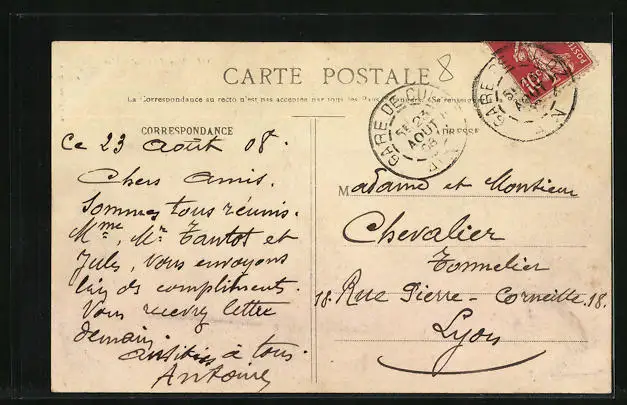 CARTE POSTALE
8
La Correspondance au recto n'est pas acceptée par tous les Pays
CORRESPONDANCE
ADRESSE
GARE DE CU
5E 23
AOUT
08
AIN
GARE
10
POSTES
Ce 23 Août 08.
Chers Amis.
Sommes tous réunis.
Mme, Mr Tantot et
Jules, vous envoyons
bien ds compliments.
Vous recevrez lettre
demain
Amitiés à tous.
Antoine
Madame et Monsieur
Chevalier
Tonnelier
18. Rue Pierre - Corneille. 18.
Lyon